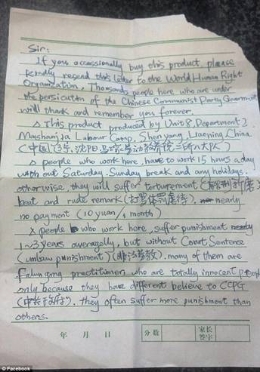 Sir:
If you occassionally buy this product, please
kindly resend this letter to the World Human Right
Organization. Thousands people here who are under
the persicution of the Chinese Communist Party Government
will thank and remember you forever.
This product produced by Unit 8, Department 2,
Mashanjia Labour Camp, Shenyang, Liaoning, China
(中国,
people who work here, have to work 15 hours a day
without Saturday, Sunday break and any holidays,
otherwise, they will suffer torturement
beat and rude remark nearly
no payment (10 yuan / month)
people who work here, suffer punishment nearly
1~3 years averagely, but without Court Sentence
(unlaw punishment) many of them are
Falun gong practitioner, who are totally innocent people
only because they have different believe to CCPG
they often suffer more punishment than
others.
年 月 日 分数 家长签字
Facebook